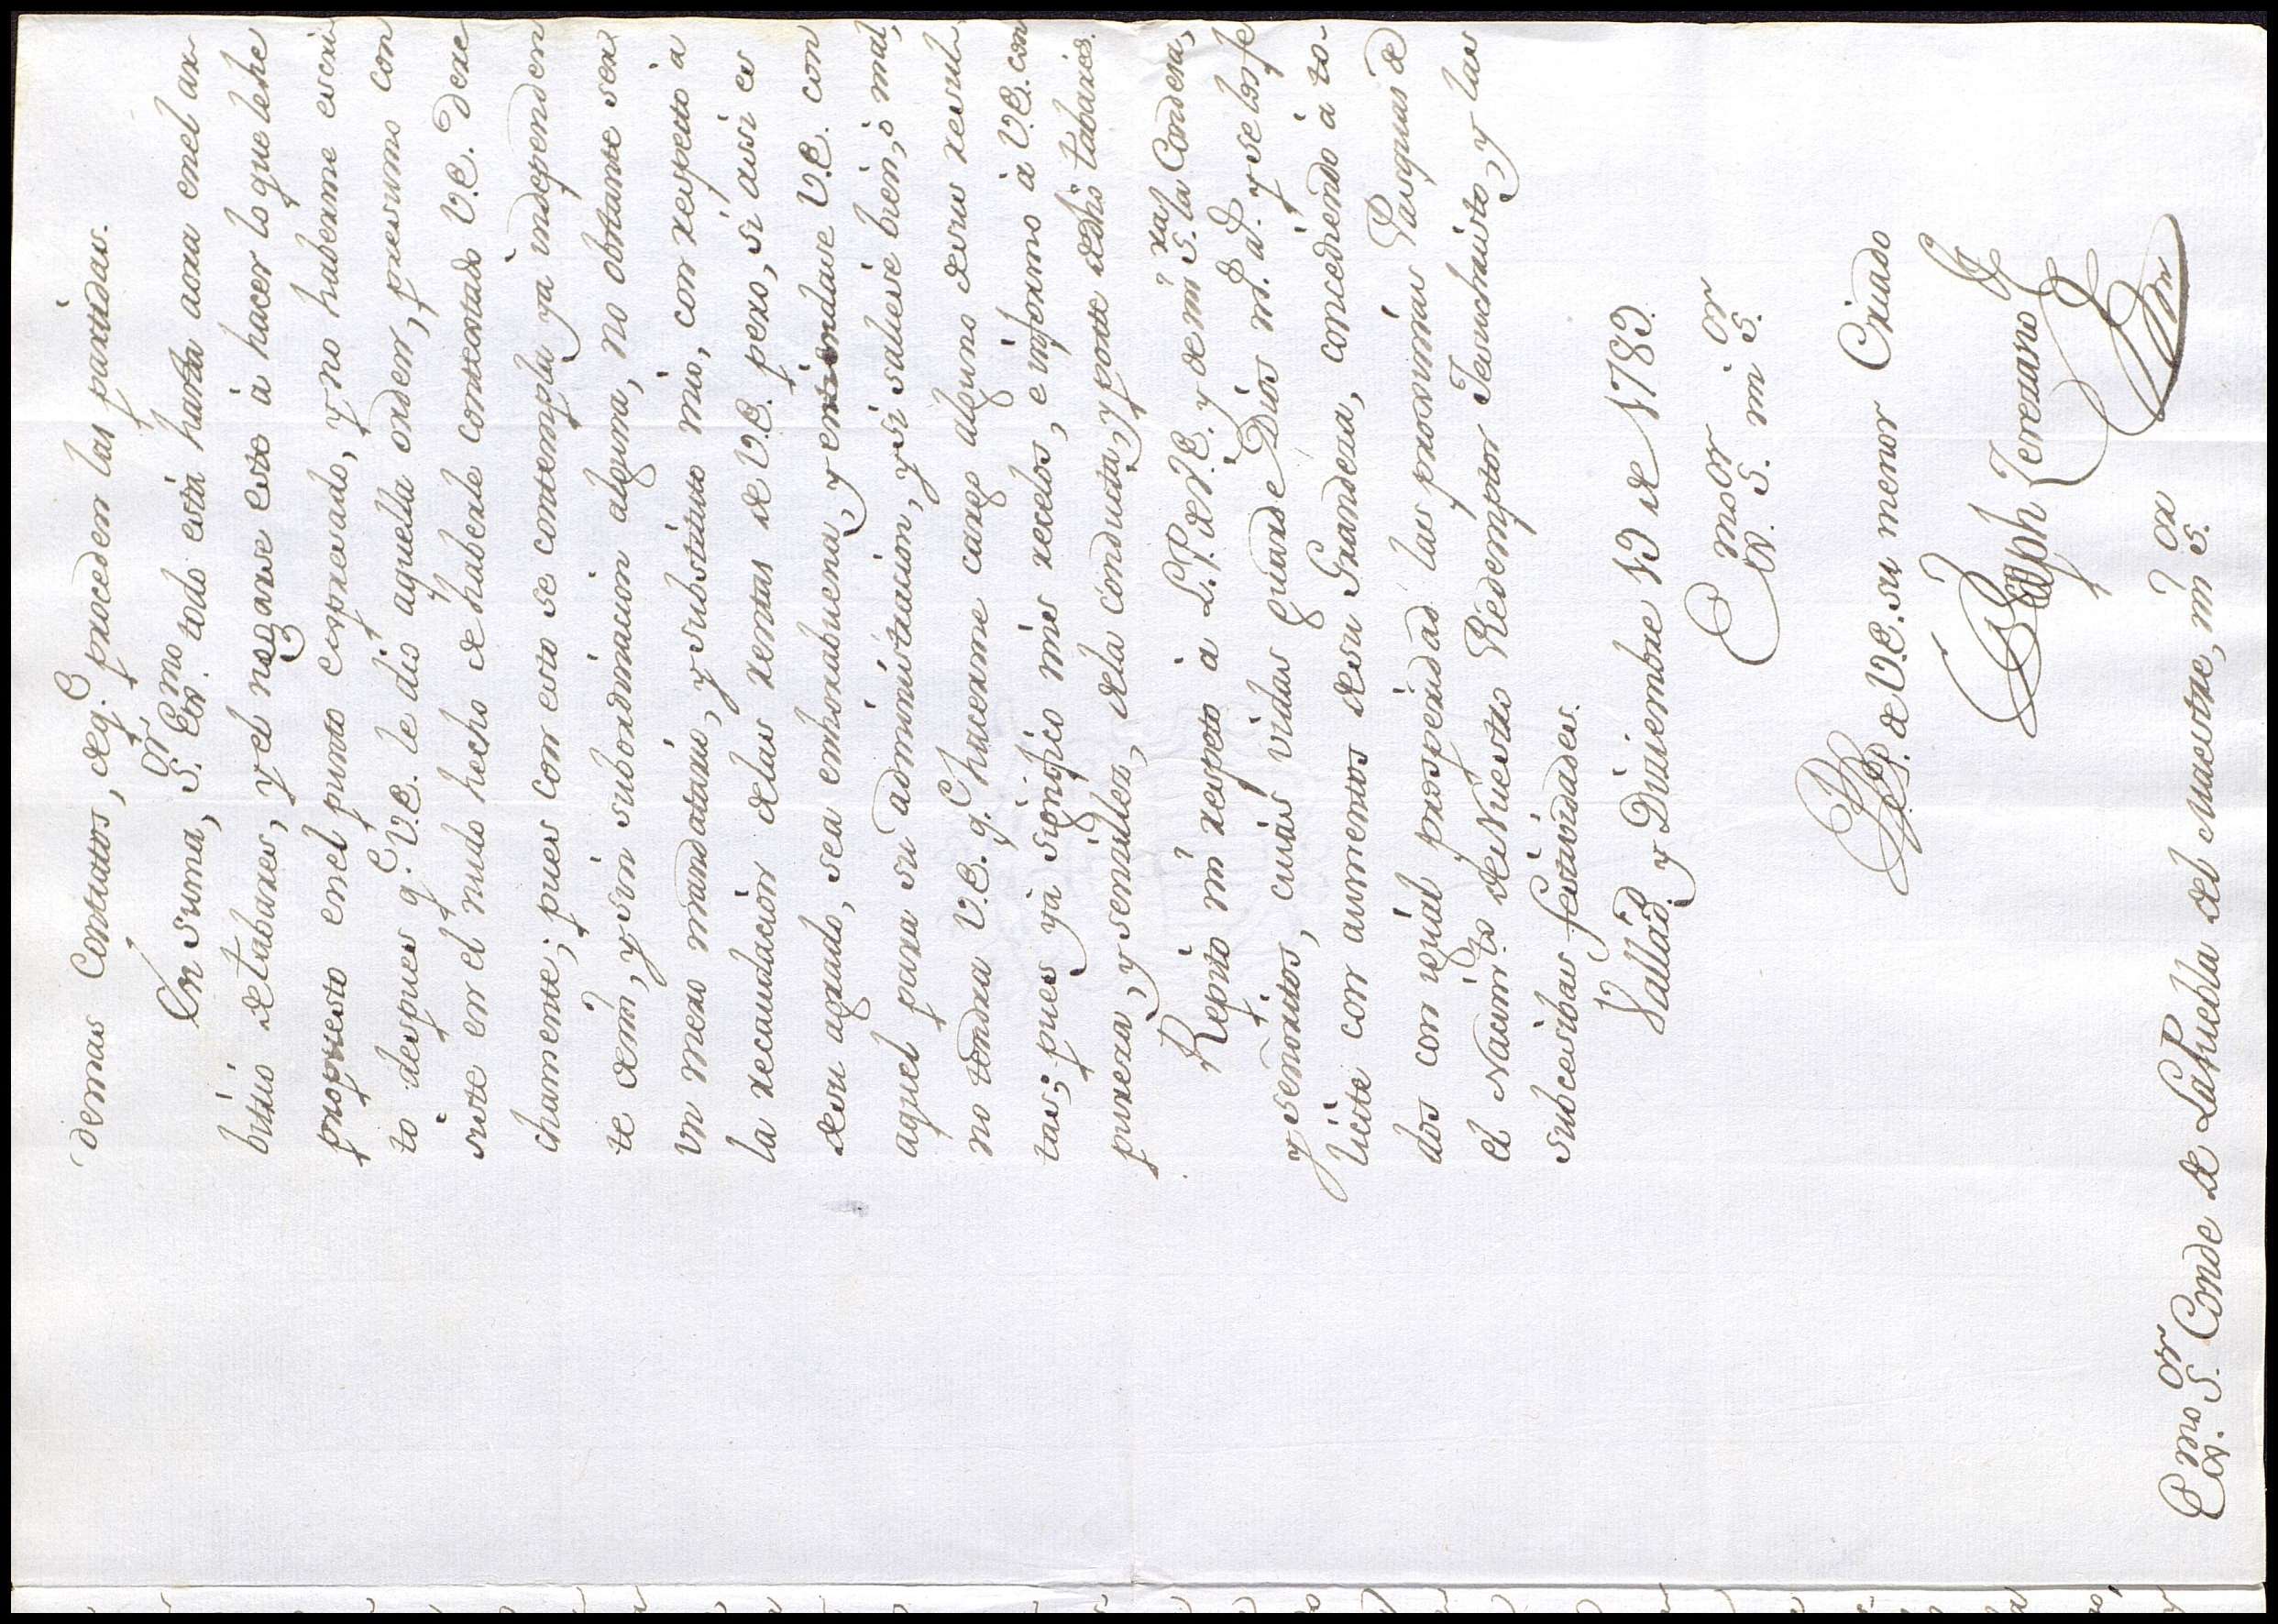 demas Contratos, deq.e proceden las partidas.
En suma, S.or Exmo. todo está hasta aora enel ar-
bitrio de Tabares, y el negarse este à hacer lo que le he
propuesto enel punto expresado, y no haberme escri-
to despues q.e V.E. le dio aquella orden, presumo con
siste en el nudo hecho de haberle contextado V.E. dere
chamente; pues con esto se contempla ya independien
te demi, y sin subordinacion alguna, no obstante ser
un mero mandatario, y substituto mio, con respecto à
la recaudacion delas rentas de V.E. pero, si assi es
desu agrado, sea enhorabuena, y entiendase V.E. con
aquel para su administracion, y si saliese bien, ò mal,
no tendra V.E. q.e hacerme cargo alguno desus resul-
tas; pues ya significo mis recelos, e informo à V.E. con
pureza, y sencillez, dela conducta, y porte dedho Tabares.
Repito mi respeto à L.P. de V.E. y de mi S.ra la Condesa,
y señoritos, cuias vidas guarde Dios m.s a.s y se las fe
licite con aumentos desu Grandeza, concediendo à to-
dos con igual prosperidad las proximas Pasquas de
el Nacim.to de Nuestro Redemptor Jesuchristo, y las
subcesibas festividades.
Vallad.d y Diziembre 13 de 1783.
Exmo. S.or mi S.or
B.L.P. de V.E. su menor Criado
Joseph Terezano
Exmo. S.or Conde de LaPuebla del Maestre, mi S.or